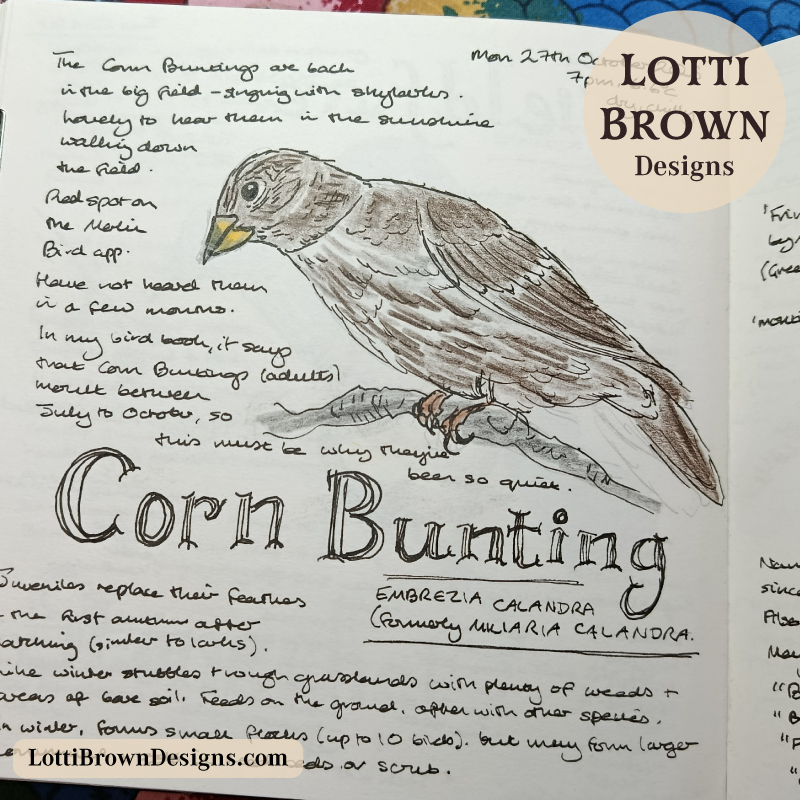 The Corn Buntings are back
in the big field - singing with skylarks.
Lovely to hear them in the sunshine
walking down
the field.
Red spot on
the Merlin
Bird app.
Have not heard them
in a few months.
In my bird book, it says
that Corn Buntings (adults)
moult between
July to October, so
this must be why they've
been so quiet.
Mon 27th October
7pm
LOTTI
BROWN
Designs
Corn Bunting
EMBREZIA CALANDRA
(formerly MILIARIA CALANDRA.
Juveniles replace their feathers
the first autumn after
hatching (similar to larks).
like winter stubbles + rough grasslands with plenty of weeds +
areas of bare soil. Feeds on the ground, often with other species.
In winter, forms small flocks (up to 10 birds), but may form larger
or scrub.
LottiBrownDesigns.com
(Gree
since